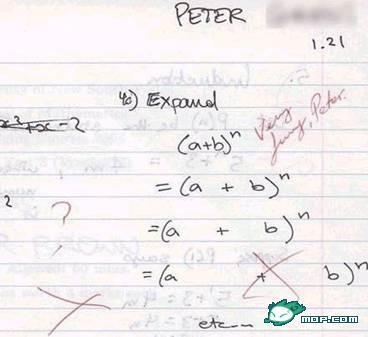 PETER
1.21
x³+x-2
4c) Expand
Very funny, Peter.
(a+b)ⁿ
= (a + b)ⁿ
?
= (a + b)ⁿ
= (a + b)ⁿ
etc...
MOP.COM